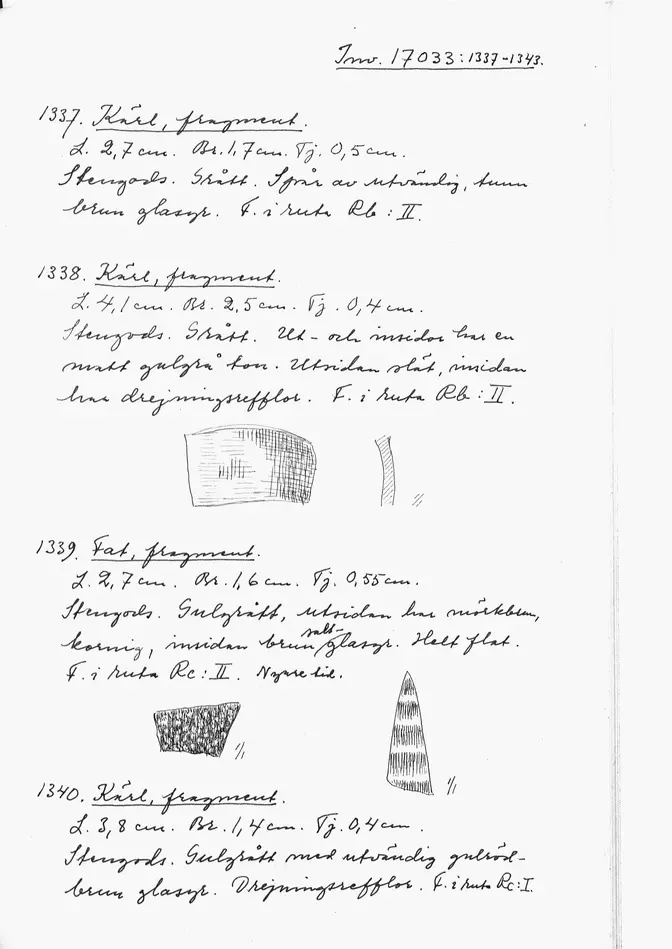 Inv. 17033:1337-1343.
1337. Kärl, fragment.
L. 2,7 cm. Br. 1,7 cm. Tj. 0,5 cm.
Stengods. Grått. Spår av utvändig, tunn
brun glasyr. F. i ruta Rb : II.
1338. Kärl, fragment.
L. 4,1 cm. Br. 2,5 cm. Tj. 0,4 cm.
Stengods. Grått. Ut- och insidor har en
matt gulgrå ton. Utsidan slät, insidan
har drejningsrefflor. F. i ruta Rb : II.
1/1
1339. Fat, fragment.
L. 2,7 cm. Br. 1,6 cm. Tj. 0,55 cm.
Stengods. Gulgrått, utsidan har mörkbrun,
salt-
kornig, insidan brun glasyr. Helt flat.
F. i ruta Rc : II. Nyare tid.
1/1
1/1
1340. Kärl, fragment.
L. 3,8 cm. Br. 1,4 cm. Tj. 0,4 cm.
Stengods. Gulgrått med utvändig gulröd-
brun glasyr. Drejningsrefflor. F. i ruta Rc: I.